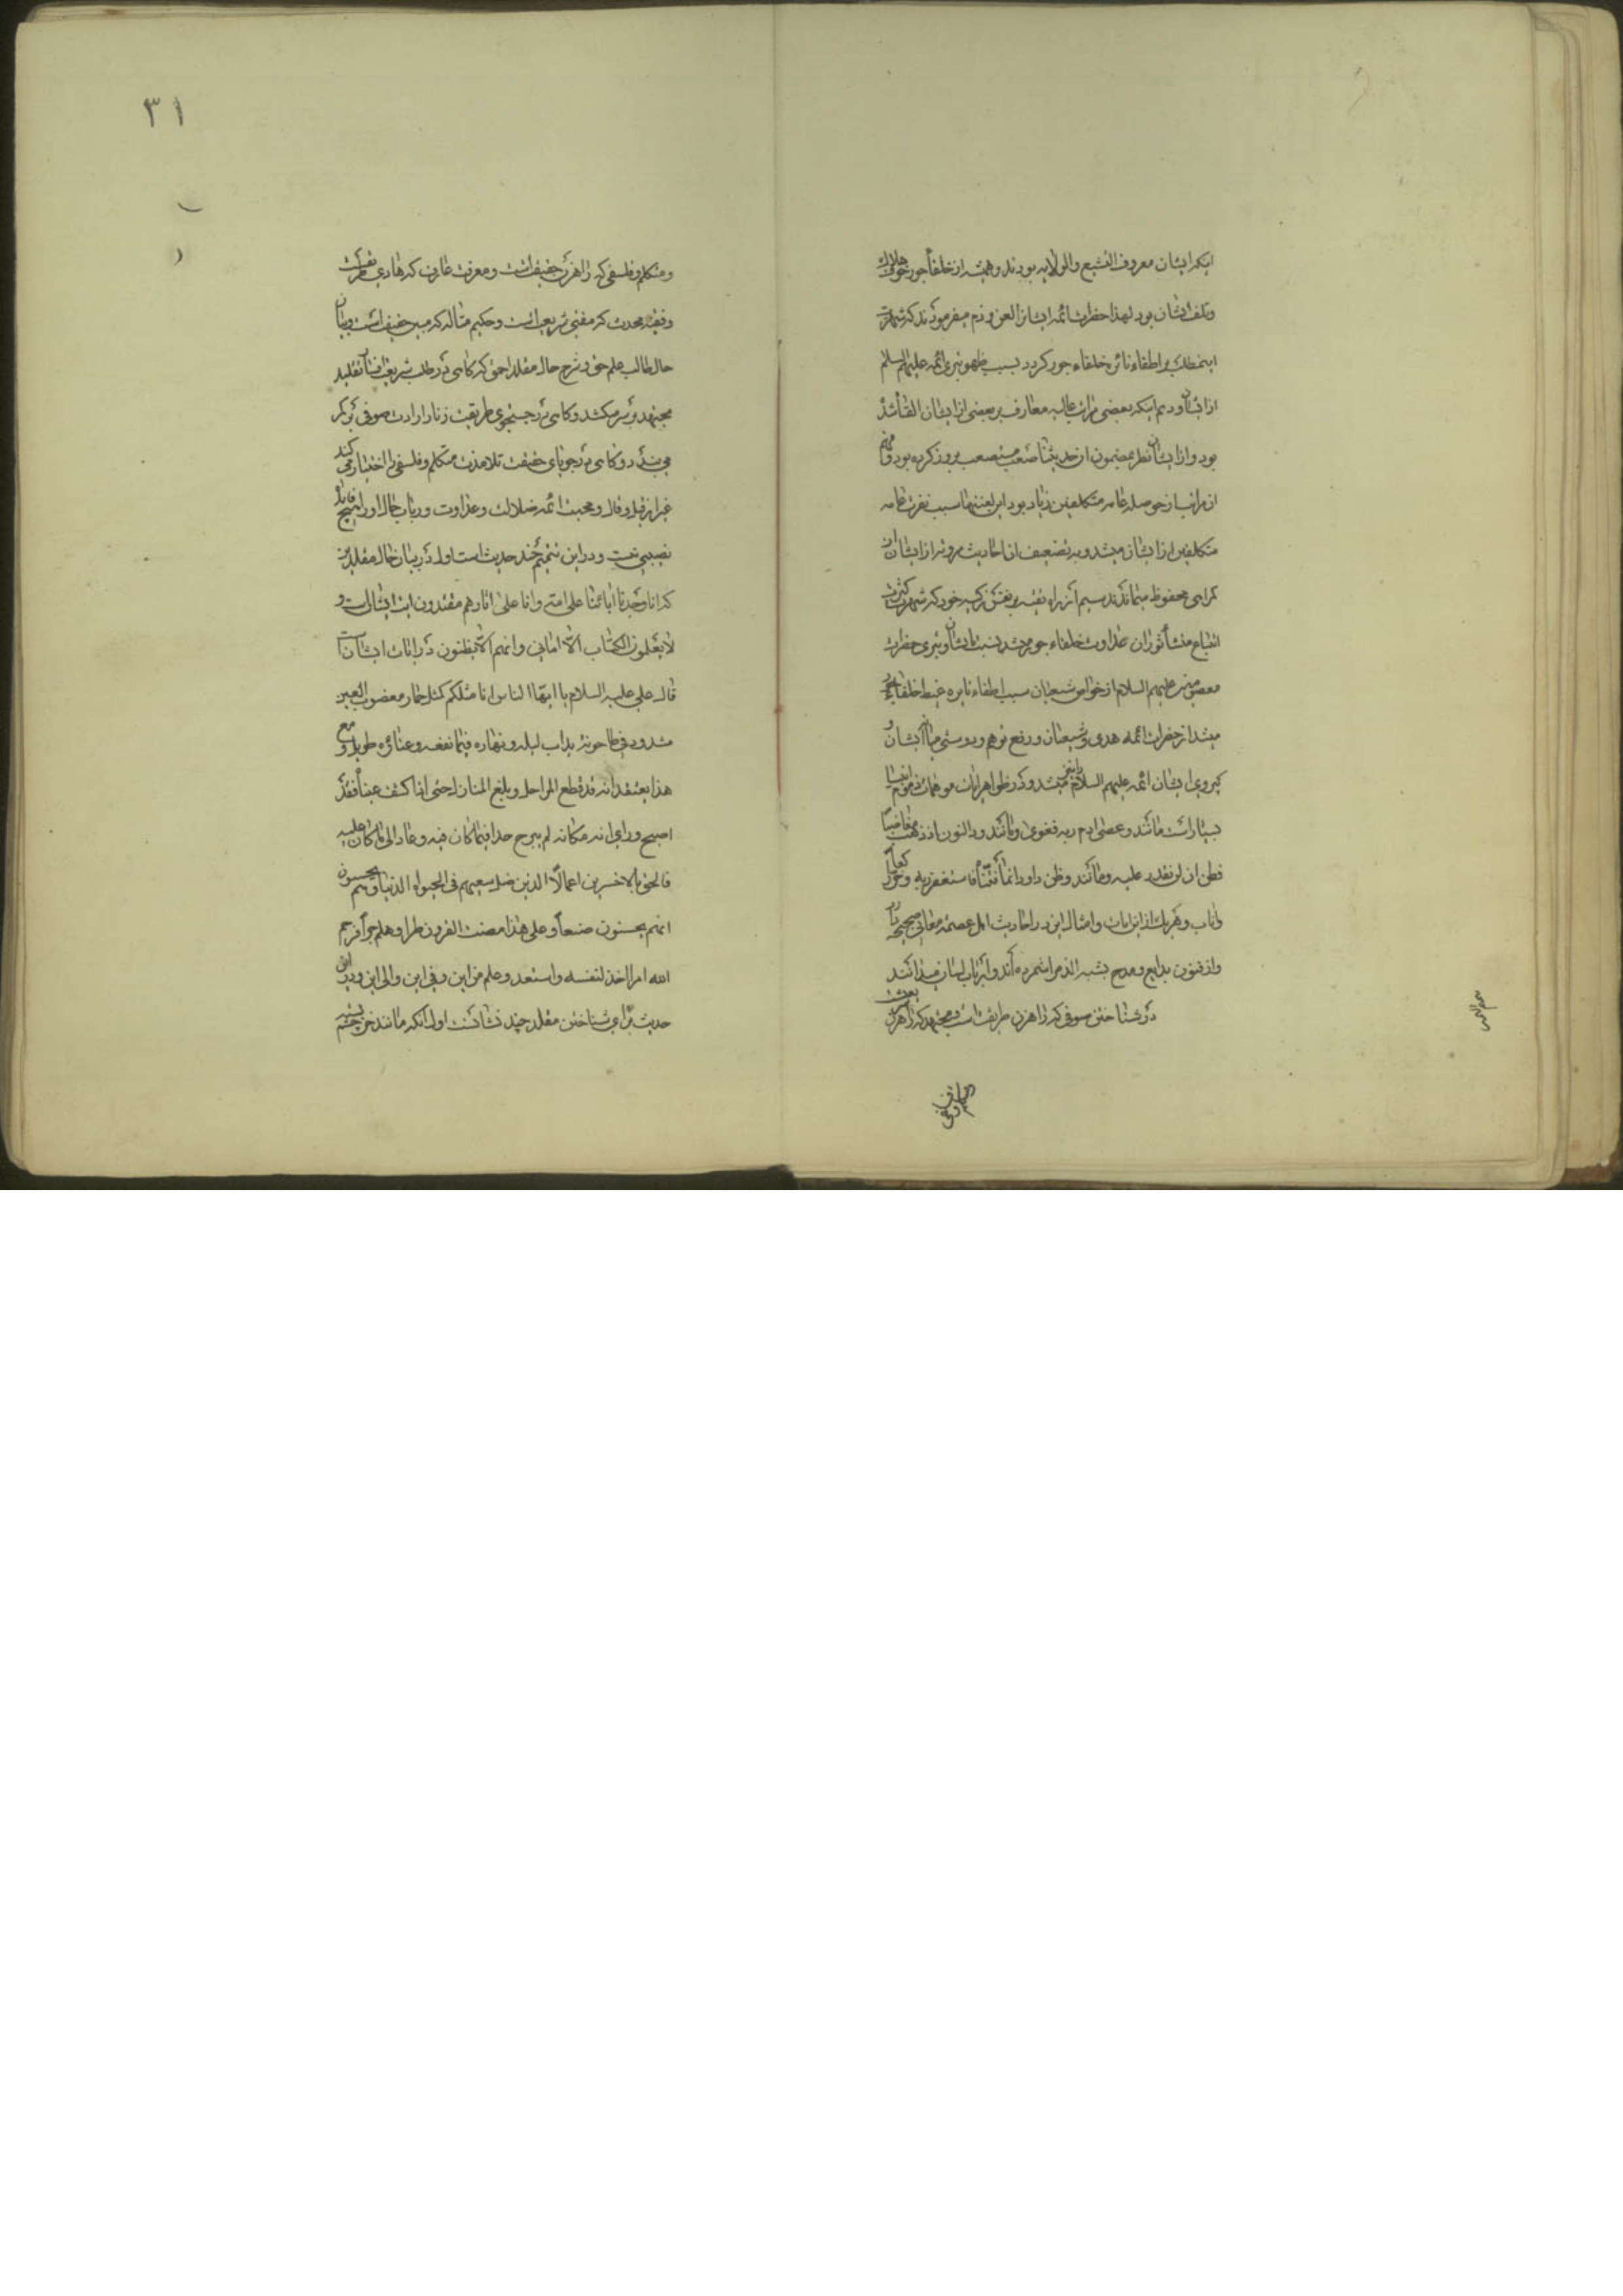 اینکه ایشان معروف التشیع والولایه بودند و همیشه از خلفا جور خوف هلاک
وتلف ایشان بود لهذا حضرات ائمه ایشانرا لعن و ذم میفرمودند که شهرت
اینمطلب بر اطفاء نائره خلفاء جور کردد بسبب ظهور تبری ائمه علیهم السلم
از ایشان و دیم اینکه بعضی مراتب عالیه معارف بر بعضی از ایشان القا شده
بود و از ایشان نظر بمضمون ان حدیثنا صعب مستصعب بروز کرده بود و فهم
از مراتب از حوصله عامه متکلفین زیاد بود این لعنتها سبب نفرت عامه
متکلفین از ایشان میشد و به تضعیف ان احادیث مرویه از ایشان از
کمراهی محفوظ میماندند سیم از راه تقیه بر نفس زکیه خود که شهرت کثرت
اتباع منشأ ثوران عداوت خلفاء جور میشد نسبت بایشان و تبری حضرات
معصومین علیهم السلام از خواص شیعیان سبب اطفاء نایره غیظ خلفاء جور
میشد از حضرات ائمه هدی و شیعیان و رفع توهم و دوستی میانه ایشان و
کروی ایشان ائمه علیهم السلام میشد و در ظواهر ایات موهمات ذموم انبیا
بسیار است مانند و عصی ادم ربه فغوی و مانند و ذالنون اذ ذهب مغاضبا
فظن ان لن نقدر علیه و مانند و ظن داود انما فتناه فاستغفر ربه و خر راکعا
واناب و هر یک از این ایات و امثال این در احادیث اهل عصمه معانی صحیحه دارد
واز فنون بدایع و مدح بشبه الذم را شمرده اند و ارباب لسان میدانند
در شناختن صوفی که راهزن طریقت است و مجتهد که راهزن
۳۱
ومتکلم و فلسفی که راهزن حقیقت است و معرفت عارف که هادی طریقت
وفقیه محدث که مفتی شریعت است و حکیم متاله که مبین حقیقت است وبیان
حال طالب علم حق و شرح حال مقلد احمق که کاهی در طلب شریعت افسار تقلید
مجتهد بر سر میکشد و کاهی در جستجوی طریقت زنار ارادت صوفی بر کمر
می بندد و کاهی در جویای حقیقت تلامذت متکلم و فلسفی را اختیار می کند
غیر از قیل و قال و محبت ائمه ضلالت و عداوت ورباب حال او را هیچ
نصیبی نیست و در این تتمیم چند حدیث است اول در بیان حال مقلدین
که انا وجدنا آبائنا علی امة وانا علی اثارهم مقتدون ایت ایشان است و
لا یعلمون الکتاب الا امانی وانهم الا یظنون در ایات ایشان است
قال علی علیه السلام یا ایها الناس انا مثلکم کمثل حمار معضوب العین
مشدود فی طاحونة یداب لیله و نهاره فیما نفعه و عناؤه طویل و مع
هذا یعتقد انه قد قطع المراحل و بلغ المنازل حتی اذا کشف عیناه فقد
اصبح ورای انه مکانه لم یبرح حدا فیما کان فیه وعاد الی ما کان علیه
فالحق بالاخسرین اعمالا الذین ضل سعیهم فی الحیوة الدنیا وهم یحسبون
انهم یحسنون صنعا و علی هذا مضت القرون طرا و هلم جرا فرحم
الله امرا اخذ لنفسه واستعد و علم من این و فی این والی این ودر این
حدیث برای شناختن مقلد چند نشانست اول انکه مانند خر چشم بسته